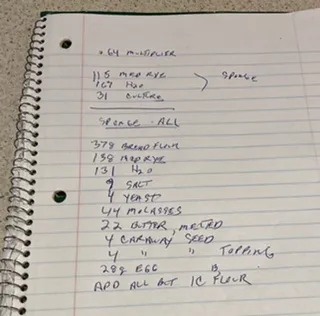 .64 MULTIPLIER
115 MED RYE
167 H2O SPONGE
31 CULTURE
SPONGE - ALL
378 BREAD FLOUR
158 MED RYE
131 H2O
9 SALT
4 YEAST
44 MOLASSES
22 BUTTER, MELTED
4 CARAWAY SEED
4 " " TOPPING
28g EGG
ADD ALL BUT 1C FLOUR